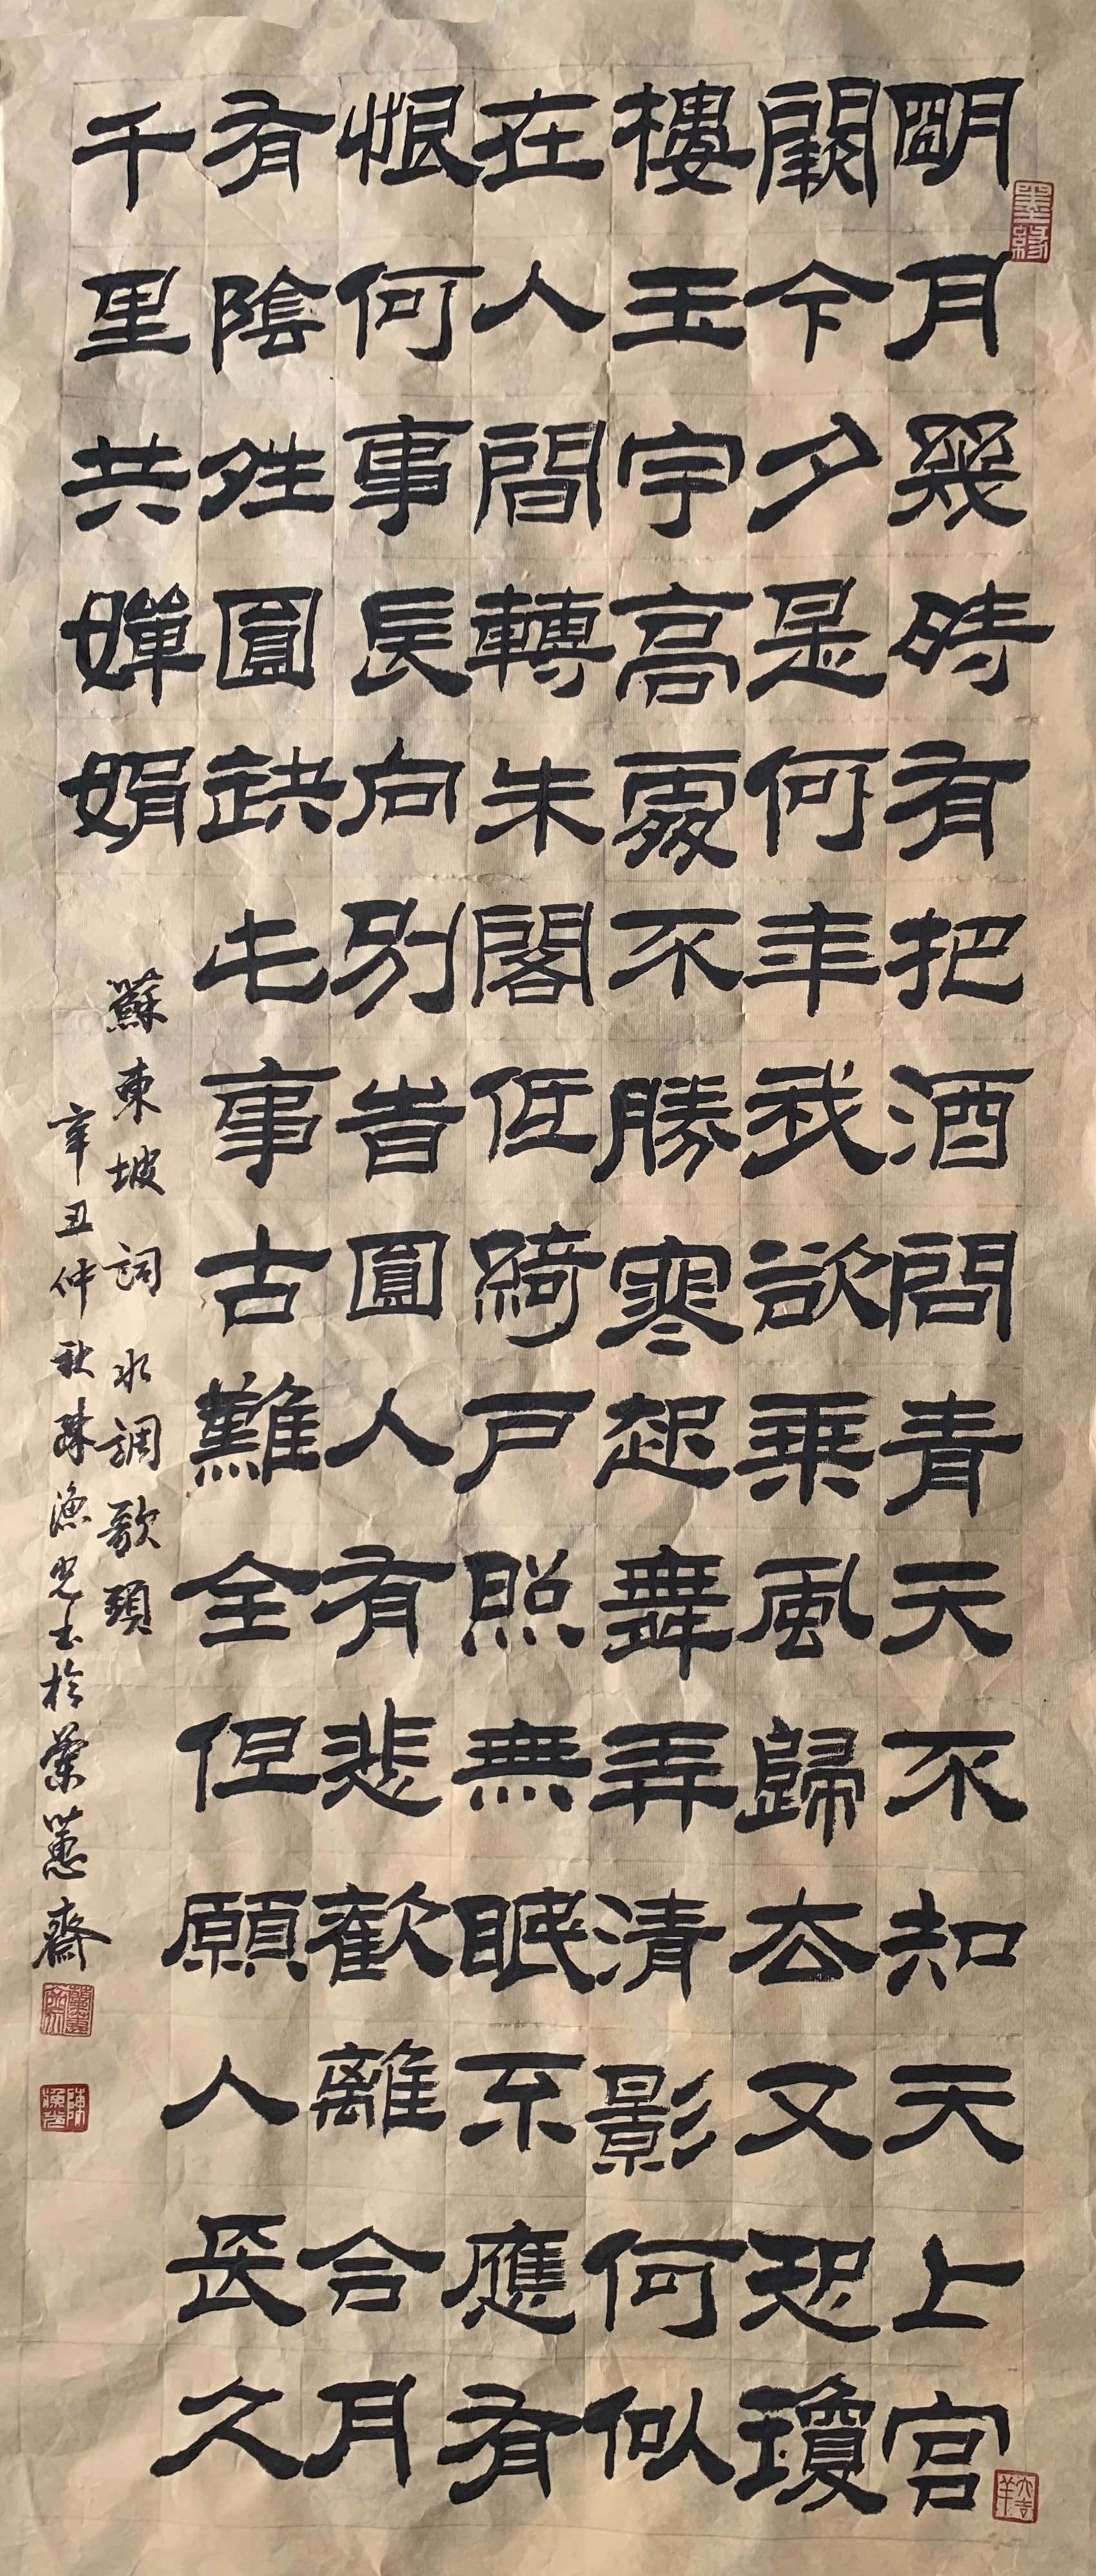 明月幾時有把酒問青天不知天上宮
闕今夕是何年我欲乘風歸去又恐瓊
樓玉宇高處不勝寒起舞弄清影何似
在人間轉朱閣低綺戶照無眠不應有
恨何事長向別音圓人有悲歡離合月
有陰姓圓缺此事古難全但願人長久
千里共嬋娟
蘇東坡詞水調歌頭
辛丑仲秋陳漁光書於蘭蕙齋
墨緣
陳漁光